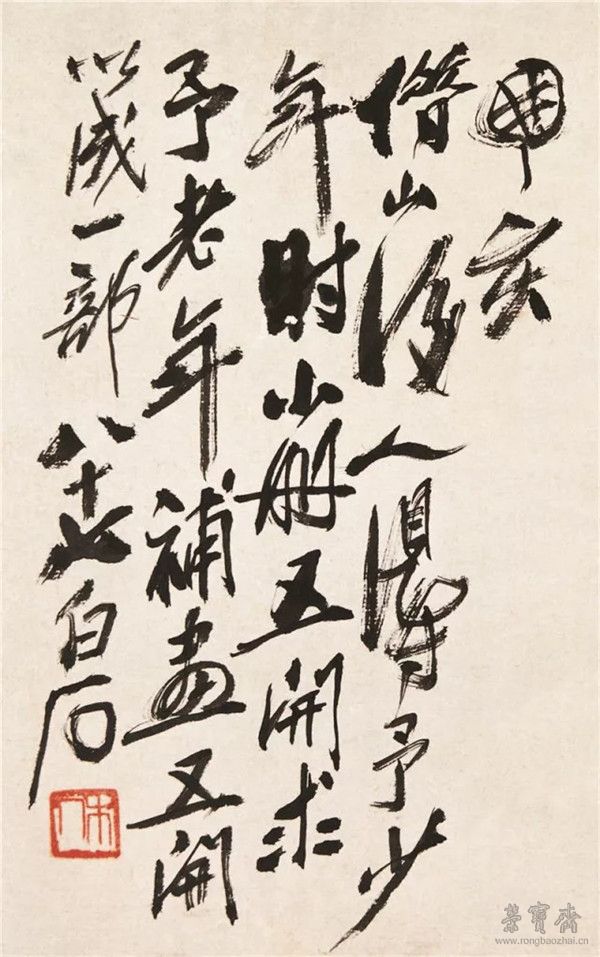 亥
借山後人得予少
年时小册五開求
予老年補畫五開
以成一部 八十七白石
木人
榮寶齋
www.rongbaozhai.cn